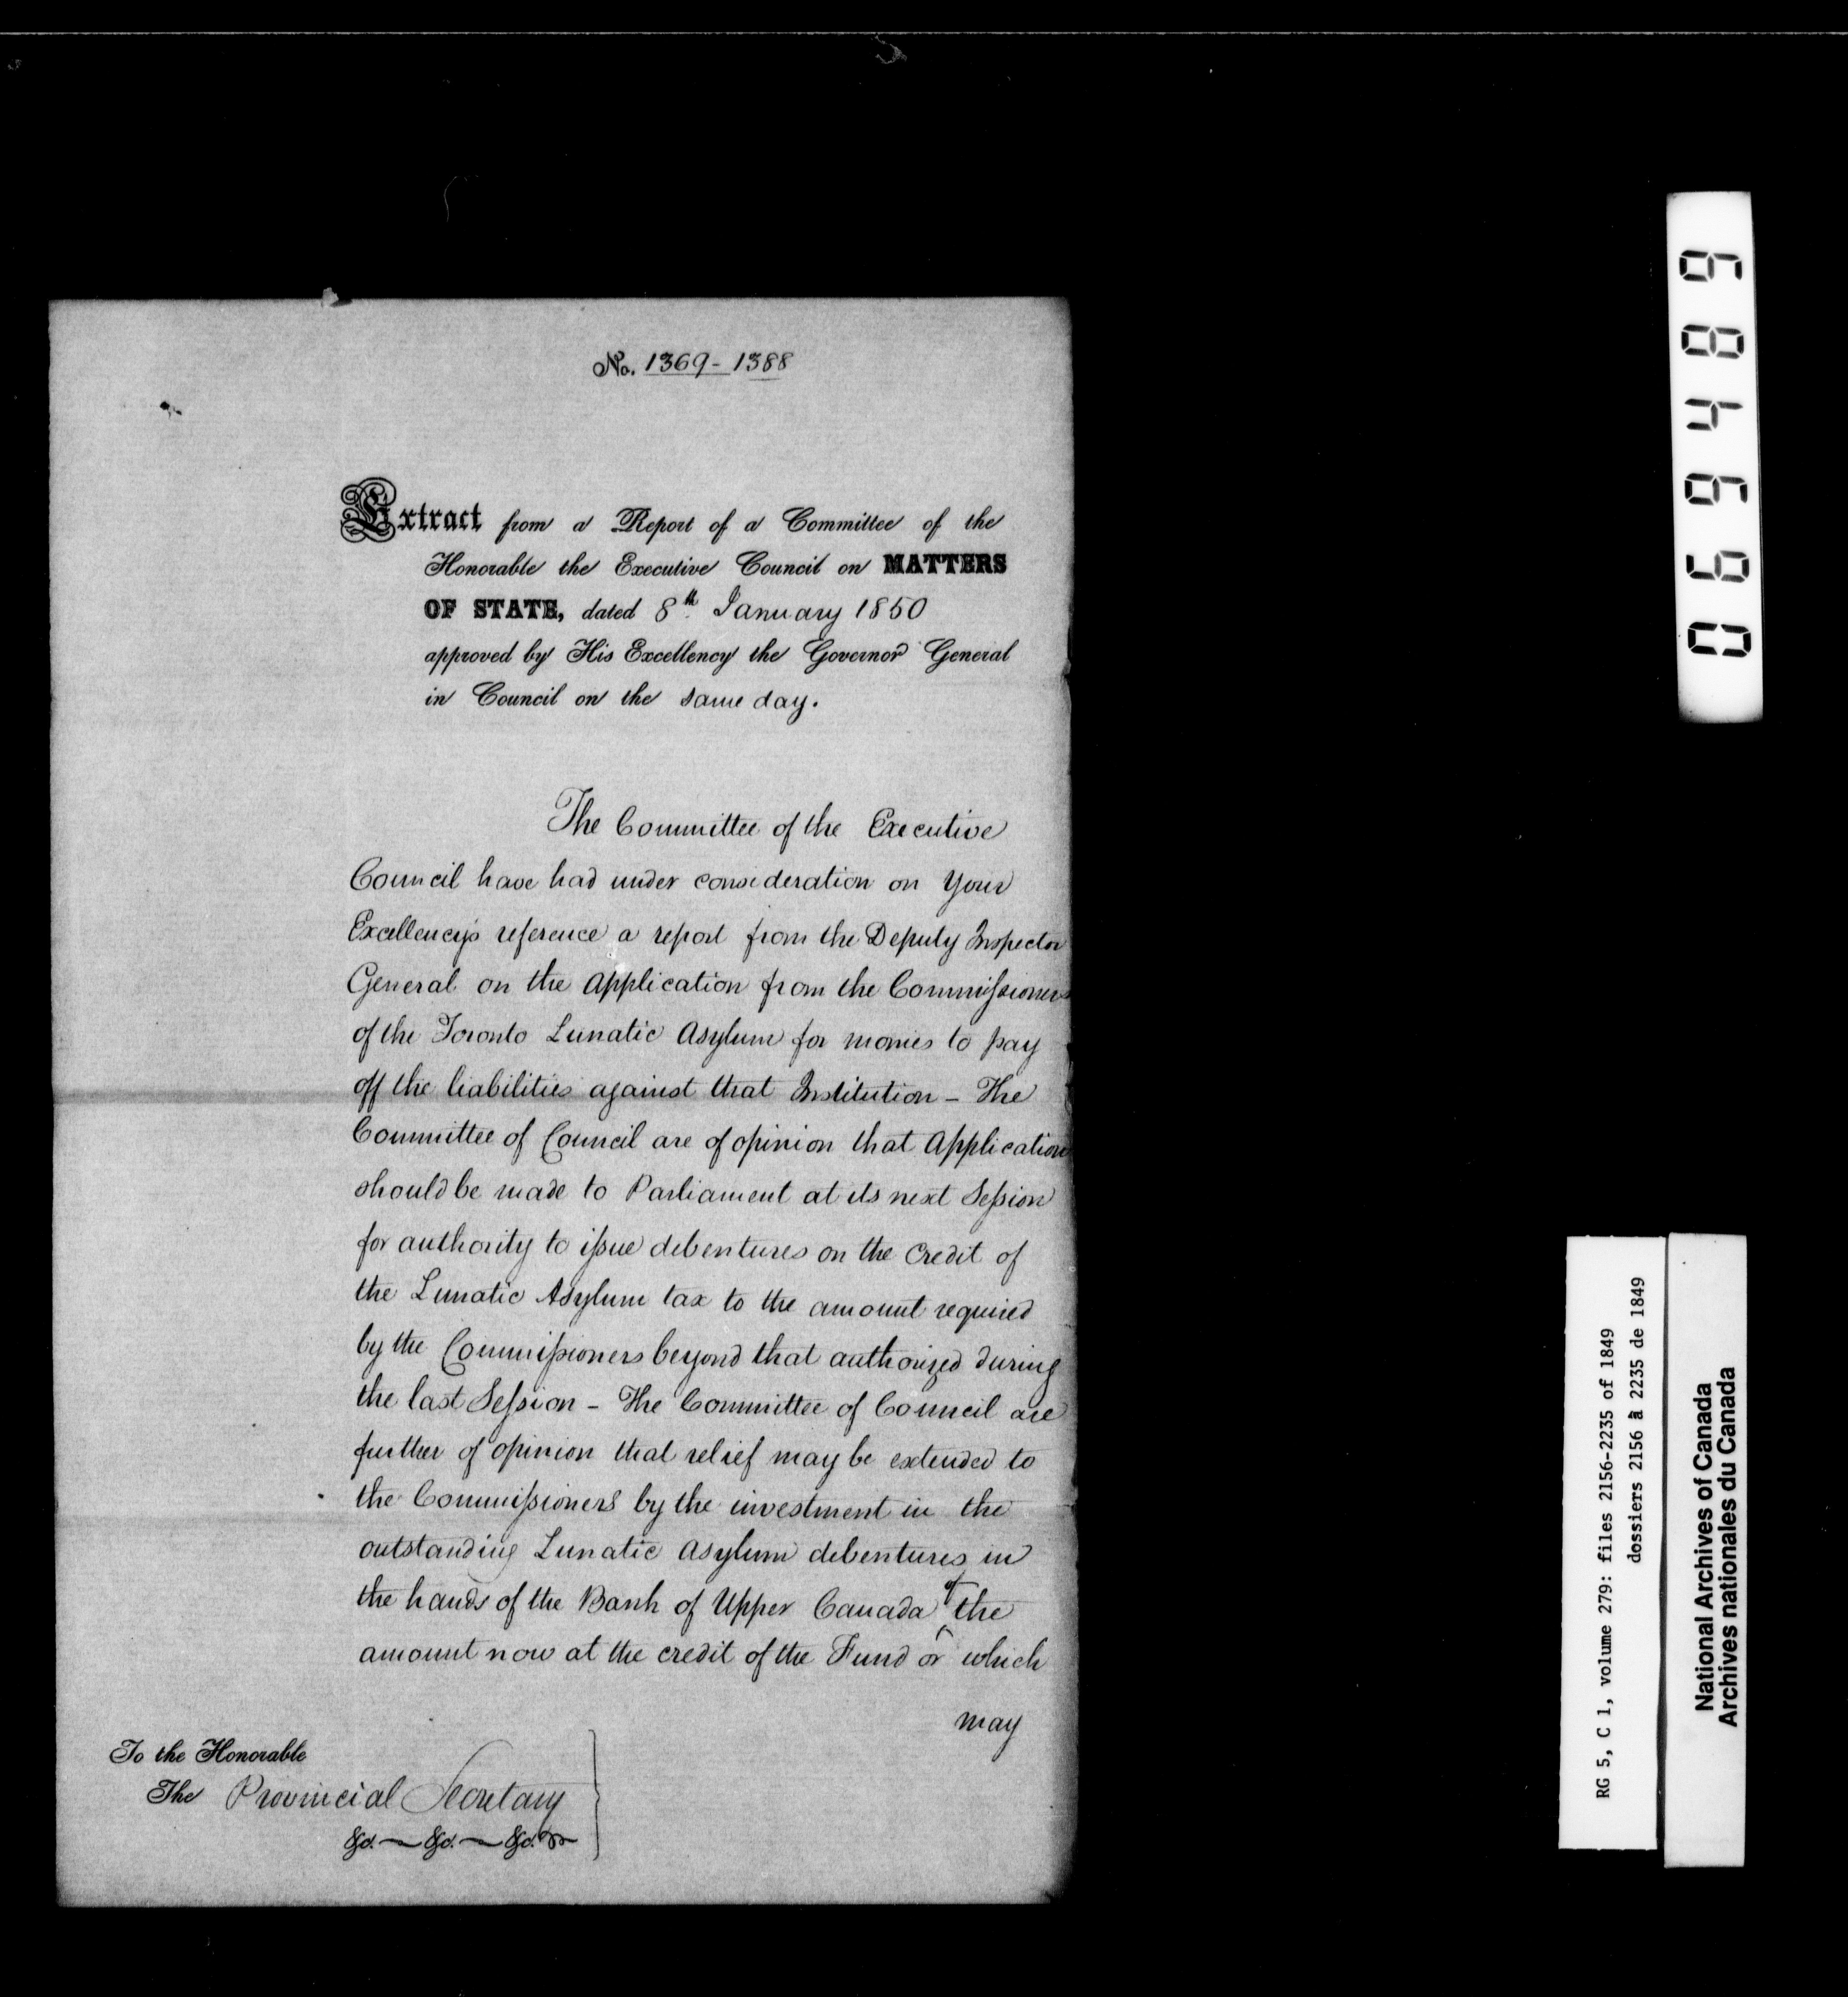 No. 1369-1388
Extract from a Report of a Committee of the
Honorable the Executive Council on MATTERS
OF STATE, dated 8th January 1850
approved by His Excellency the Governor General
in Council on the same day.
The Committee of the Executive
Council have had under consideration on Your
Excellency's reference a report from the Deputy Inspector
General on the Application from the Commissioners
of the Toronto Lunatic Asylum for monies to pay
off the liabilities against that Institution - The
Committee of Council are of opinion that Application
should be made to Parliament at its next Session
for authority to issue debentures on the credit of
the Lunatic Asylum tax to the amount required
by the Commissioners beyond that authorized during
the last Session - The Committee of Council are
further of opinion that relief may be extended to
the Commissioners by the investment in the
outstanding Lunatic Asylum debentures in
the hands of the Bank of Upper Canada of the
amount now at the credit of the Fund or which
may
To the Honorable
The Provincial Secretary
&c. &c. &c.
059489
RG 5, C 1, volume 279: files 2156-2235 of 1849
dossiers 2156 à 2235 de 1849
National Archives of Canada
Archives nationales du Canada